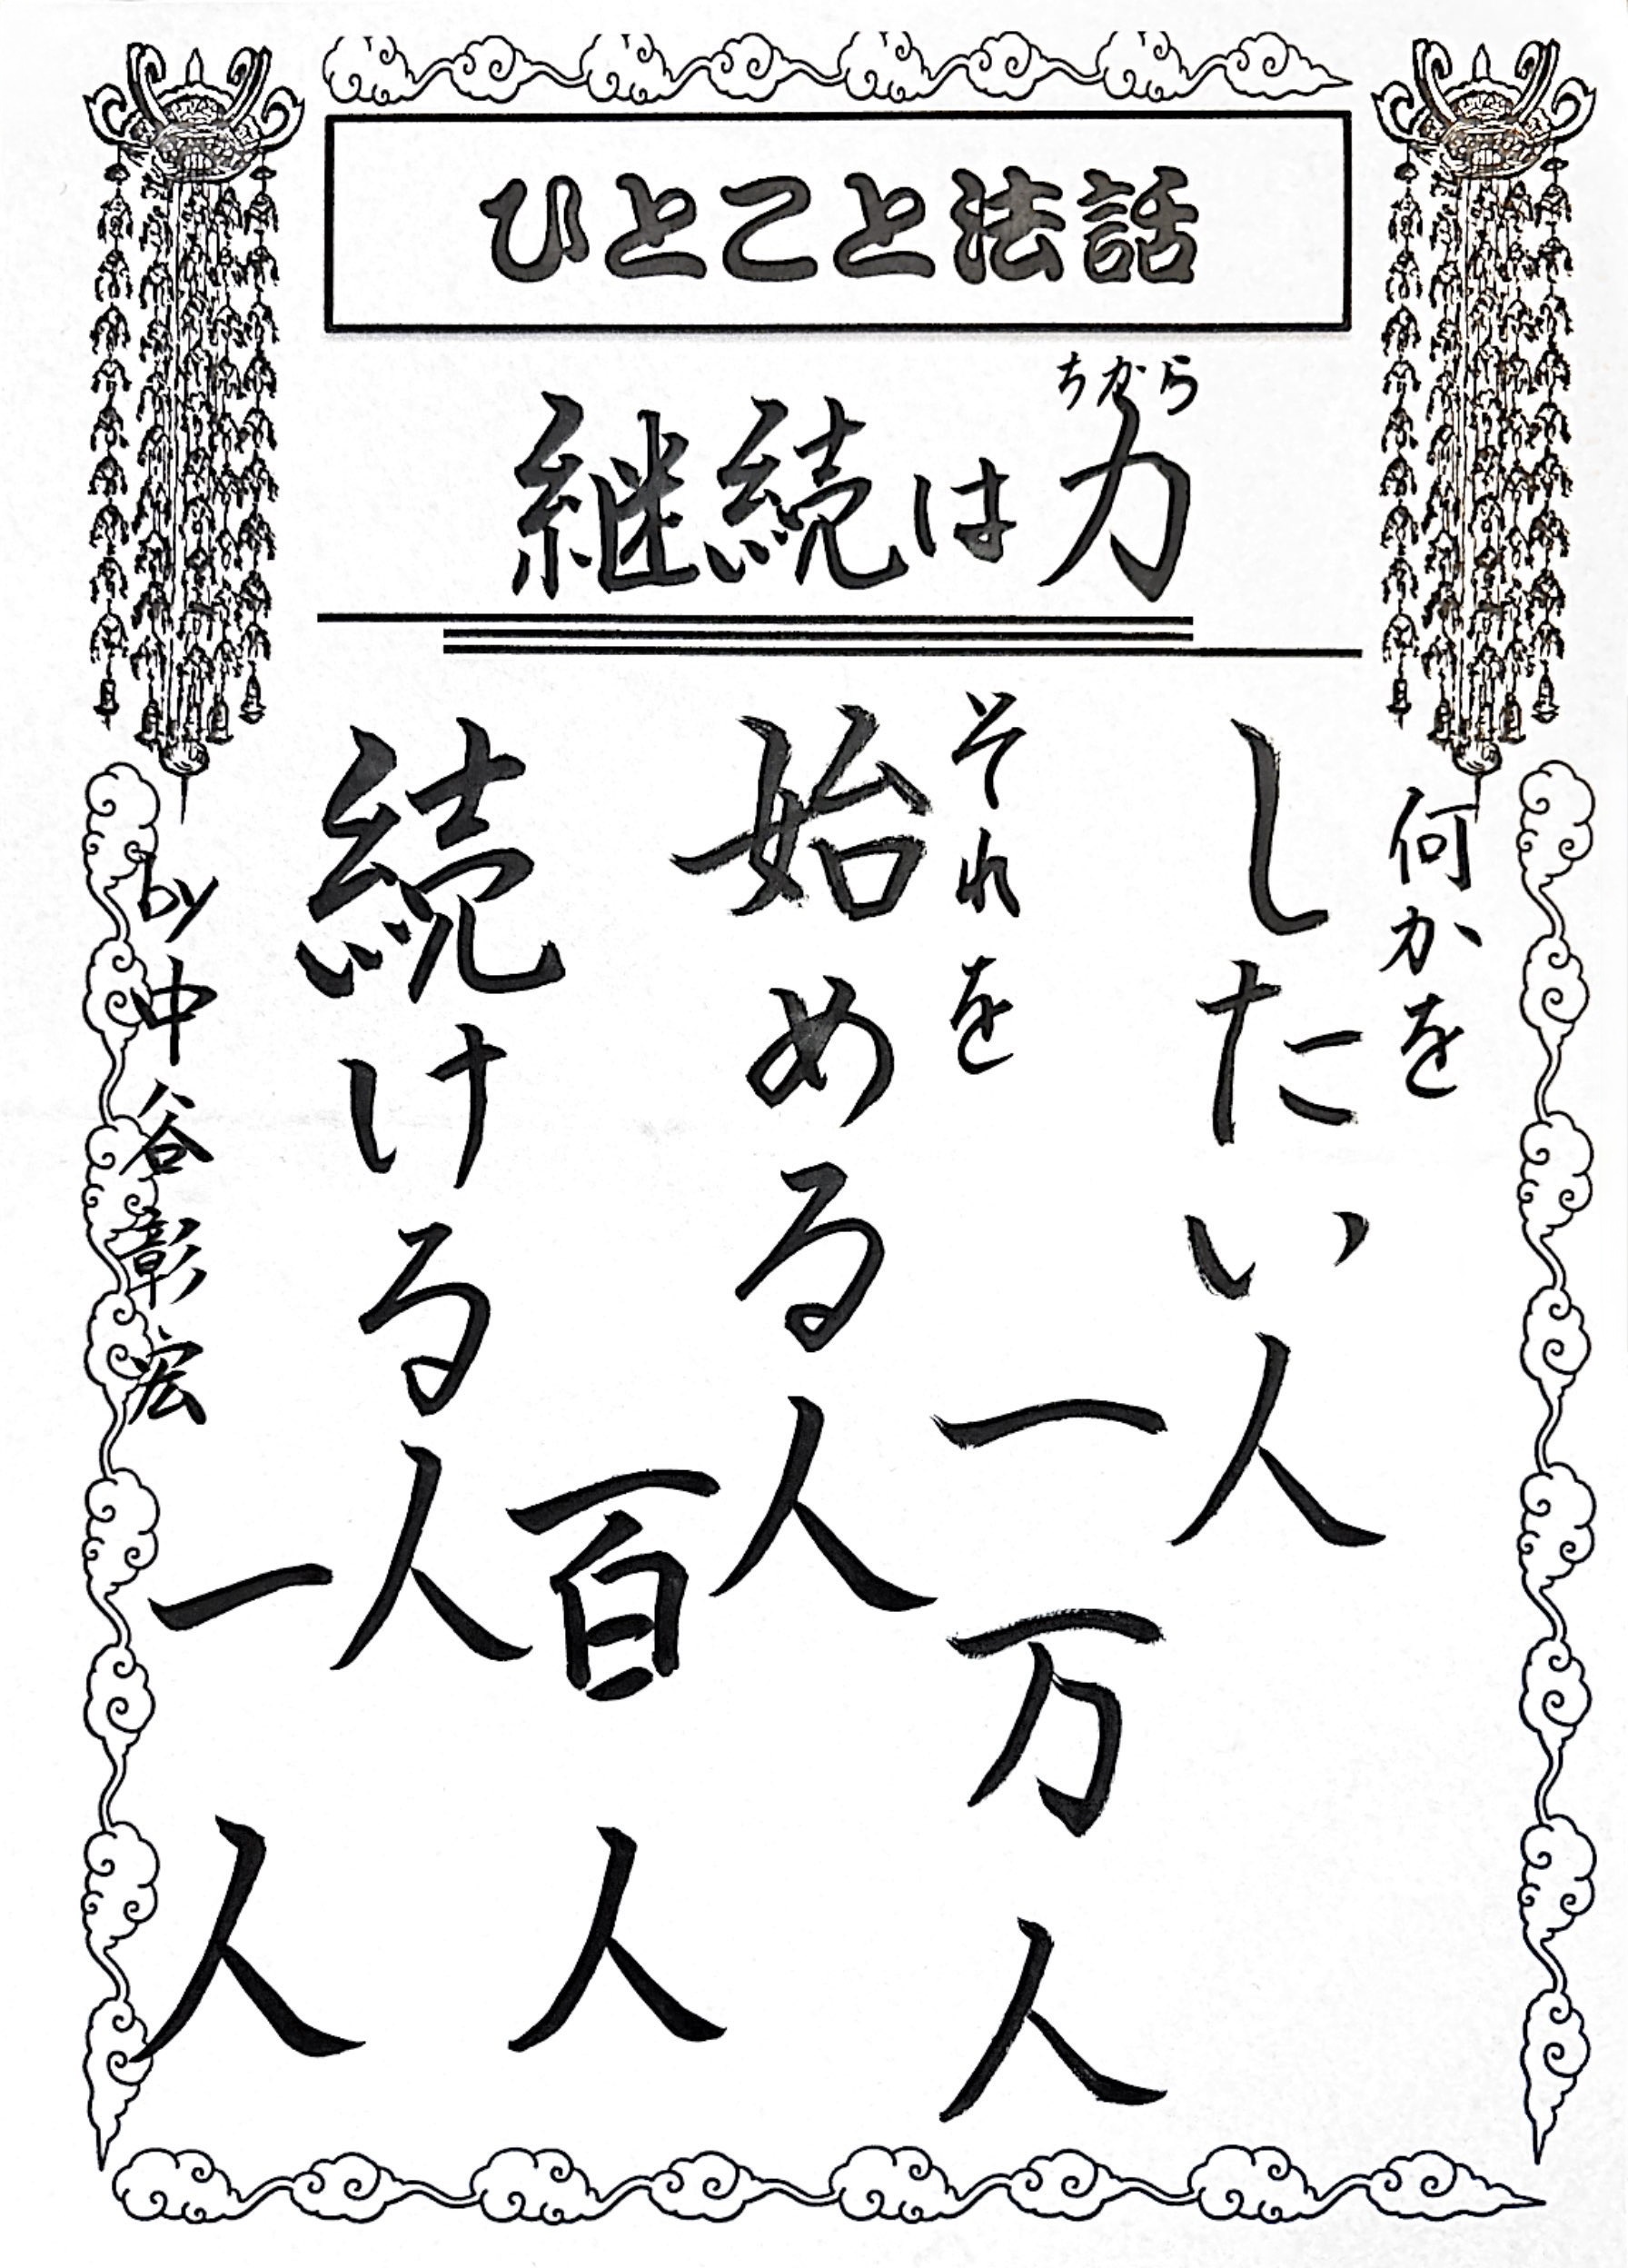 ひとこと法話
ちから
継続は力
何かを
したい人
一万人
それを
始める人
百人
続ける人
一人
by中谷彰宏